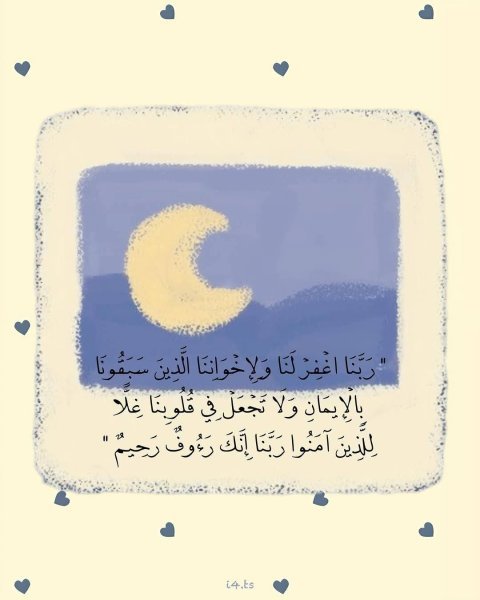 " رَبَّنَا اغْفِرْ لَنَا وَلِإِخْوَانِنَا الَّذِينَ سَبَقُونَا
بِالْإِيمَانِ وَلَا تَجْعَلْ فِي قُلُوبِنَا غِلًّا
لِلَّذِينَ آمَنُوا رَبَّنَا إِنَّكَ رَءُوفٌ رَحِيمٌ "
i4.ts